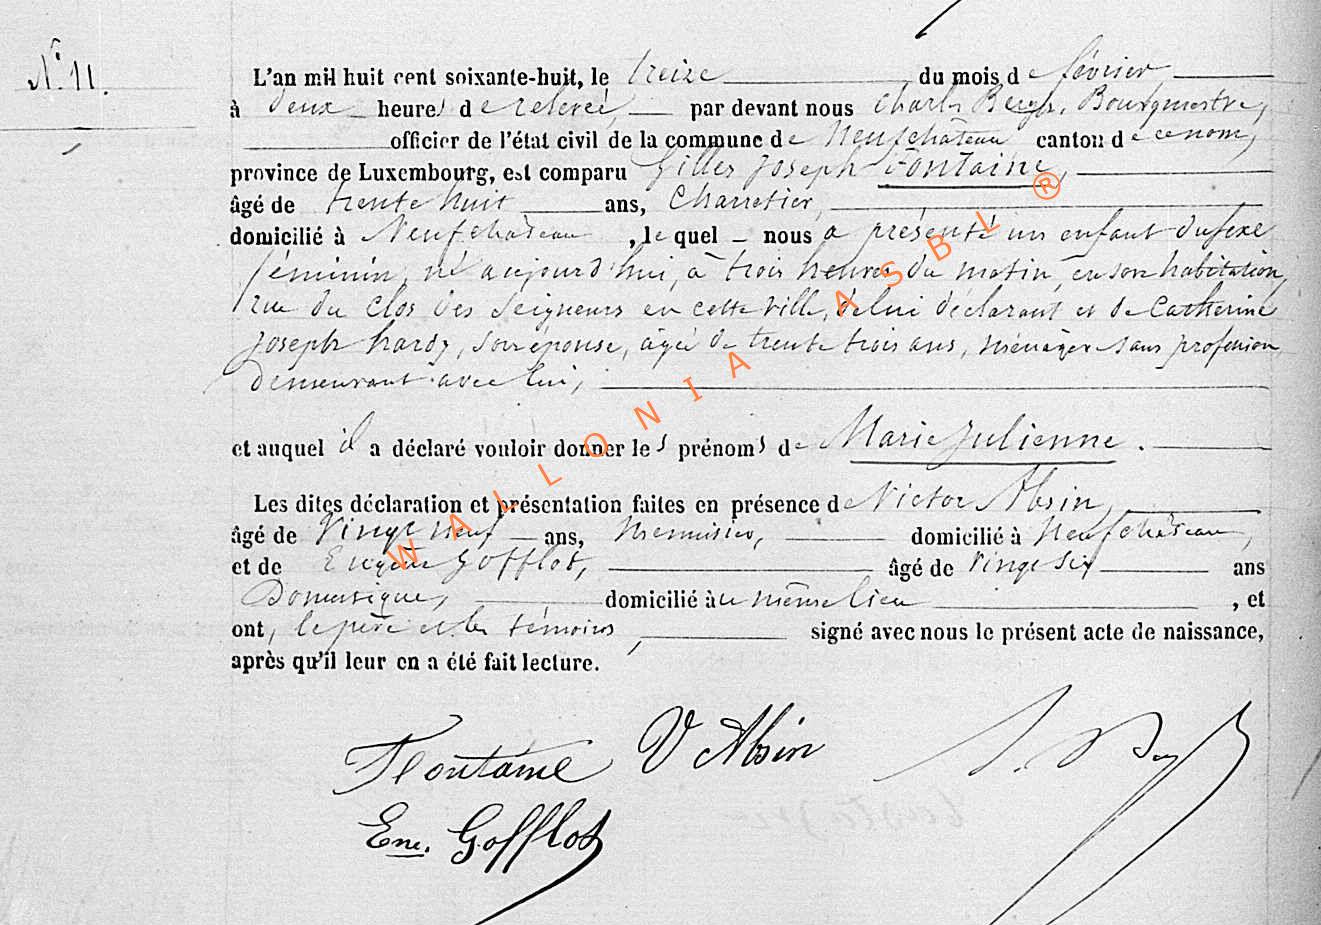 N° 11.
L'an mil huit cent soixante-huit, le treize du mois de février
à deux heures de relevée, par devant nous Charles Berger, Bourgmestre,
officier de l'état civil de la commune de Neufchâteau canton de ce nom,
province de Luxembourg, est comparu Gilles Joseph Fontaine,
âgé de trente huit ans, Charretier,
domicilié à Neufchâteau, lequel nous a présenté un enfant du sexe
féminin, né aujourd'hui, à trois heures du matin, en son habitation,
rue du Clos des Seigneurs en cette ville, de lui déclarant et de Catherine
Joseph Hardy, son épouse, âgée de trente trois ans, ménagère sans profession,
demeurant avec lui,
et auquel il a déclaré vouloir donner les prénoms de Marie Julienne.
Les dites déclaration et présentation faites en présence de Victor Absin,
âgé de vingt neuf ans, menuisier, domicilié à Neufchâteau,
et de Eugène Gofflot, âgé de vingt six ans
Domestique, domicilié au même lieu, et
ont, le père et les témoins, signé avec nous le présent acte de naissance,
après qu'il leur en a été fait lecture.
Fontaine V Absin
Ene. Gofflot
WALLONIA ASBL ®